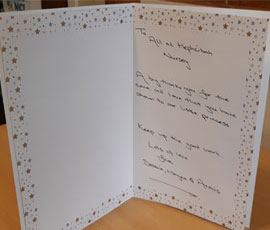 To All at Hephzibah
Nursery
A big thank you for the
care and love that you have
shown to our little princess
Keep up the good work
Lots of love
from